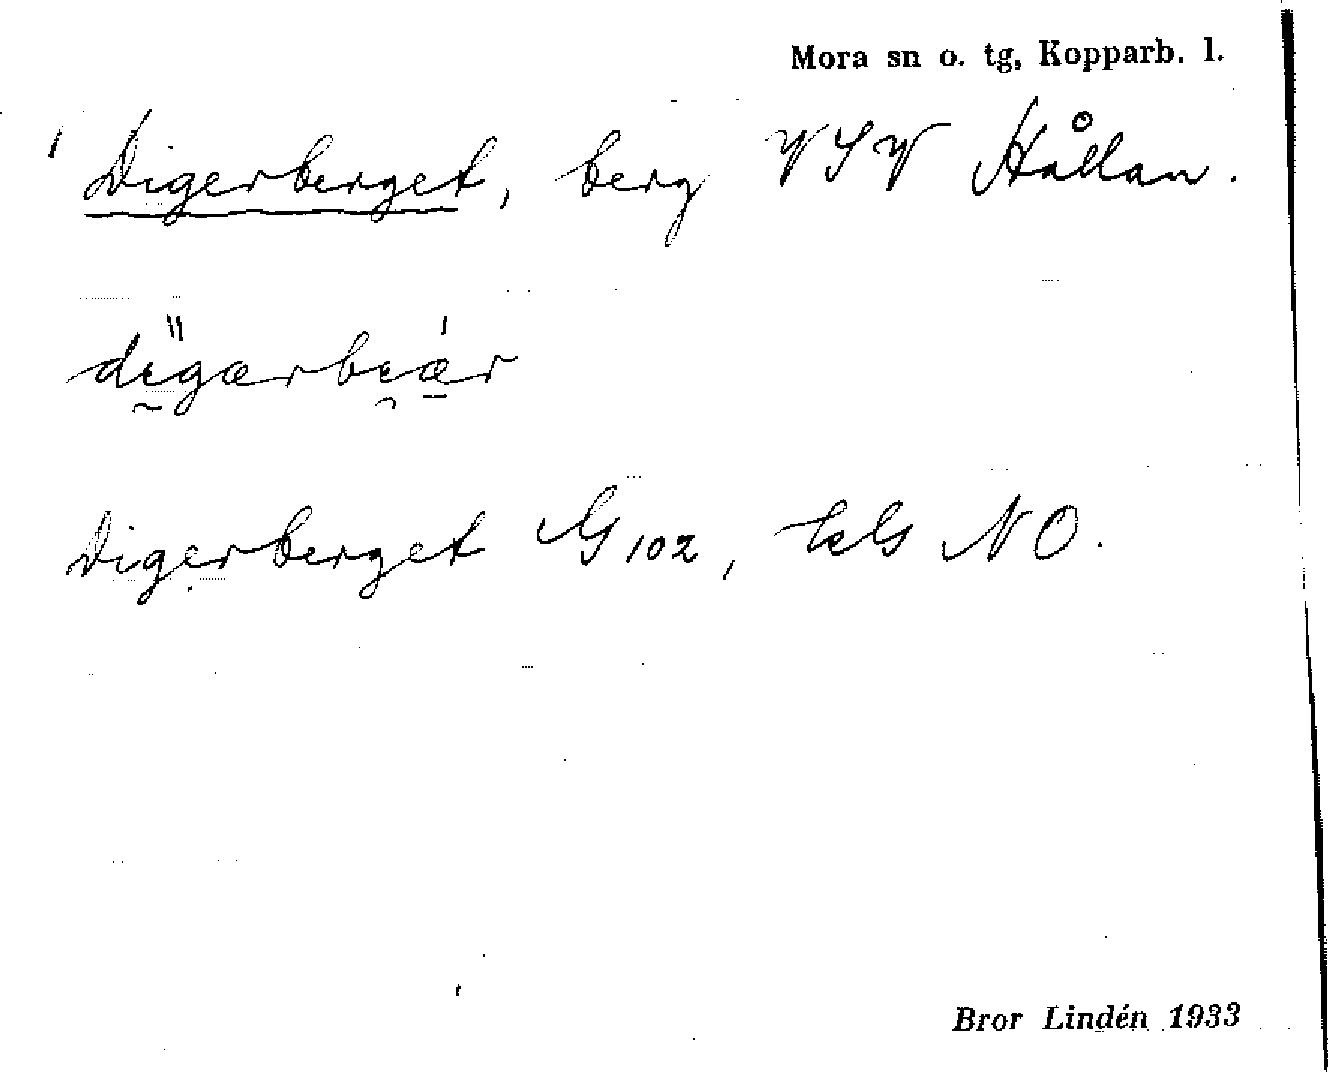 Mora sn o. tg, Kopparb. l.
Digerberget, berg VSV Hållan.
digarbiär
Digerberget G 102, kls NO.
Bror Lindén 1933